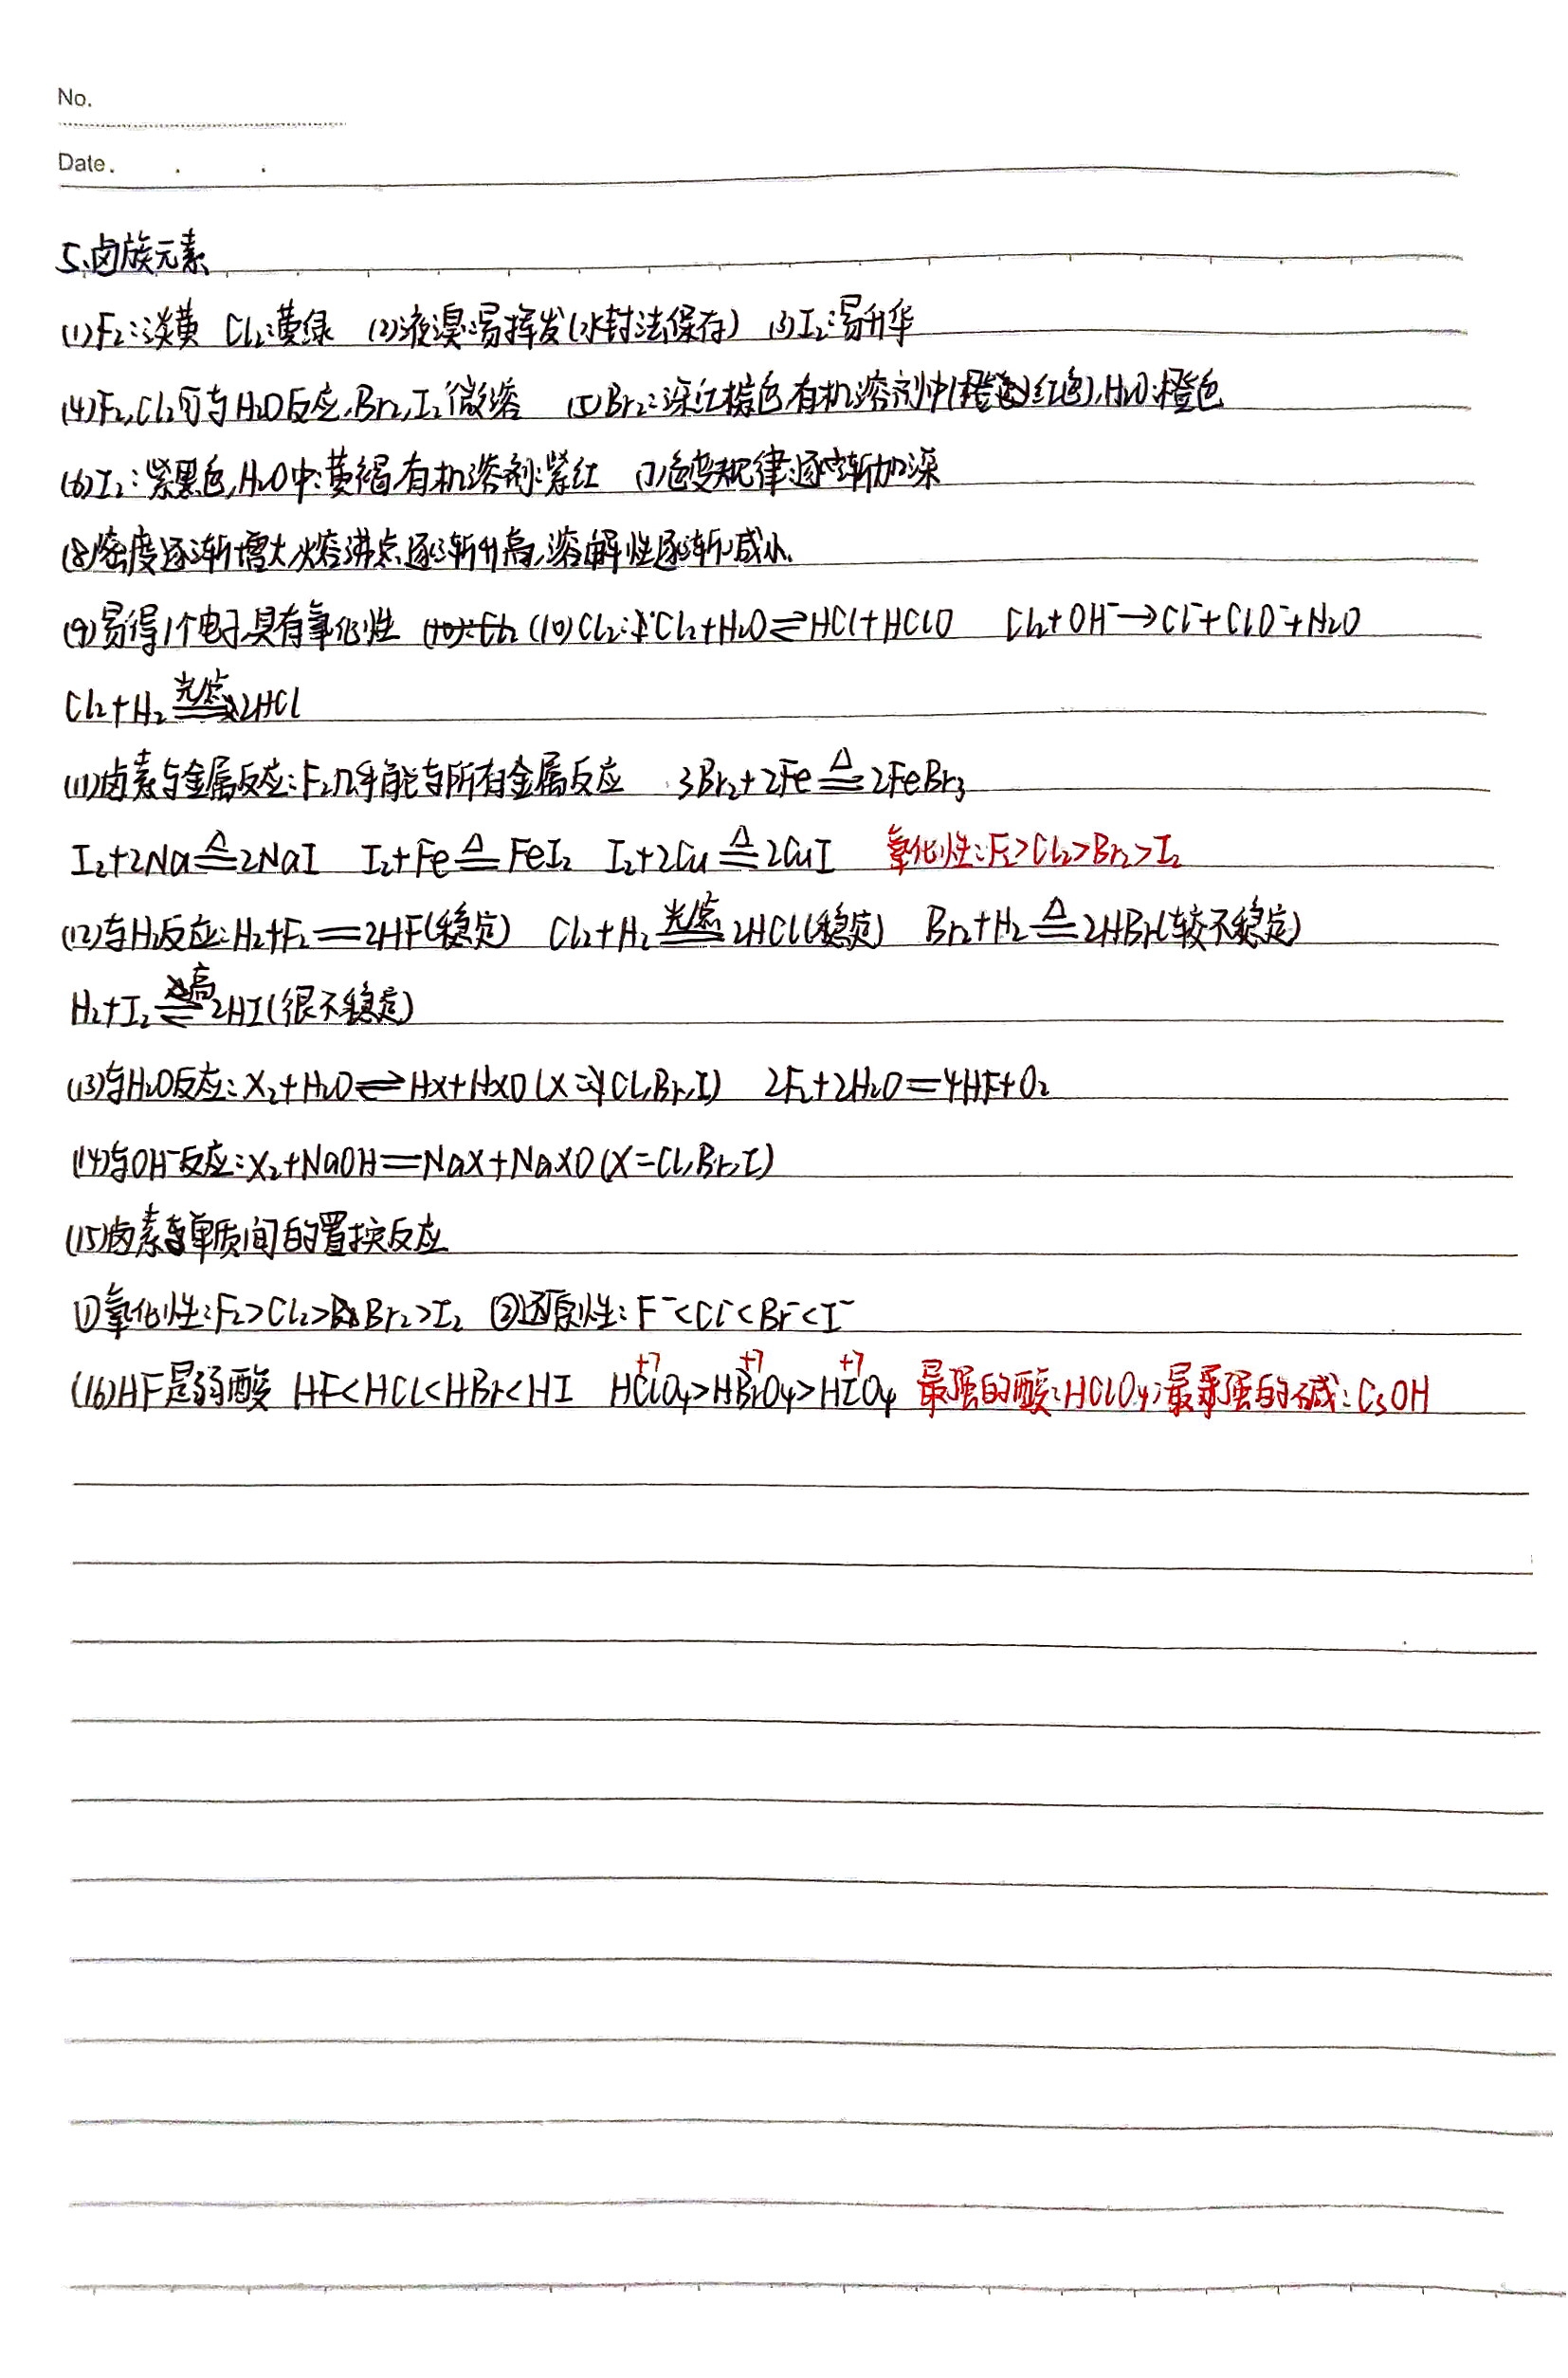 No.
Date.
5、卤族元素
(1)F₂:淡黄 Cl₂:黄绿 (2)液溴:易挥发(水封法保存) (3)I₂:易升华
(4)F₂,Cl₂可与H₂O反应,Br₂,I₂微溶 (5)Br₂:深红棕色,有机溶剂中(橙红色),H₂O:橙色
(6)I₂:紫黑色,H₂O中:黄褐,有机溶剂:紫红 (7)色变规律:逐渐加深
(8)密度逐渐增大,熔沸点逐渐升高,溶解性逐渐减小.
(9)易得1个电子,具有氧化性 (10)Cl₂:Cl₂+H₂O⇌HCl+HClO Cl₂+OH⁻→Cl⁻+ClO⁻+H₂O
Cl₂+H₂ 光/点 2HCl
(11)卤素与金属反应:F₂几乎能与所有金属反应 3Br₂+2Fe≜2FeBr₃
I₂+2Na≜2NaI I₂+Fe≜FeI₂ I₂+2Cu≜2CuI 氧化性:F₂>Cl₂>Br₂>I₂
(12)与H₂反应:H₂+F₂=2HF(稳定) Cl₂+H₂ 光/点 2HCl(稳定) Br₂+H₂≜2HBr(较不稳定)
H₂+I₂ 高 ⇌ 2HI(很不稳定)
(13)与H₂O反应:X₂+H₂O⇌HX+HXO(X=Cl,Br,I) 2F₂+2H₂O=4HF+O₂
(14)与OH⁻反应:X₂+NaOH=NaX+NaXO(X=Cl,Br,I)
(15)卤素单质间的置换反应
①氧化性:F₂>Cl₂>Br₂>I₂ ②还原性:F⁻<Cl⁻<Br⁻<I⁻
(16)HF是弱酸 HF<HCl<HBr<HI HClO₄>HBrO₄>HIO₄ +7 +7 +7 最强的酸:HClO₄;最强的碱:CsOH